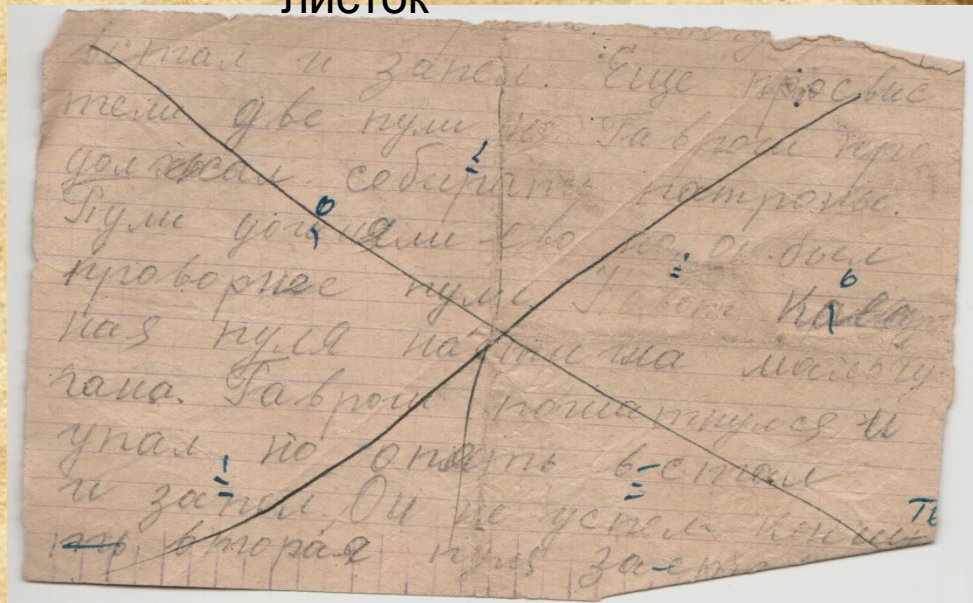 листок
встал и запел. Еще просвис
тели две пули но Гаврош про
должал собирать патроны.
Пули догоняли его но он был
проворнее пули.
ная пуля настигла мальчу
гана. Гаврош пошатнулся и
упал но опять встал
и запел. Он не успел кончи
ть вторая пуля